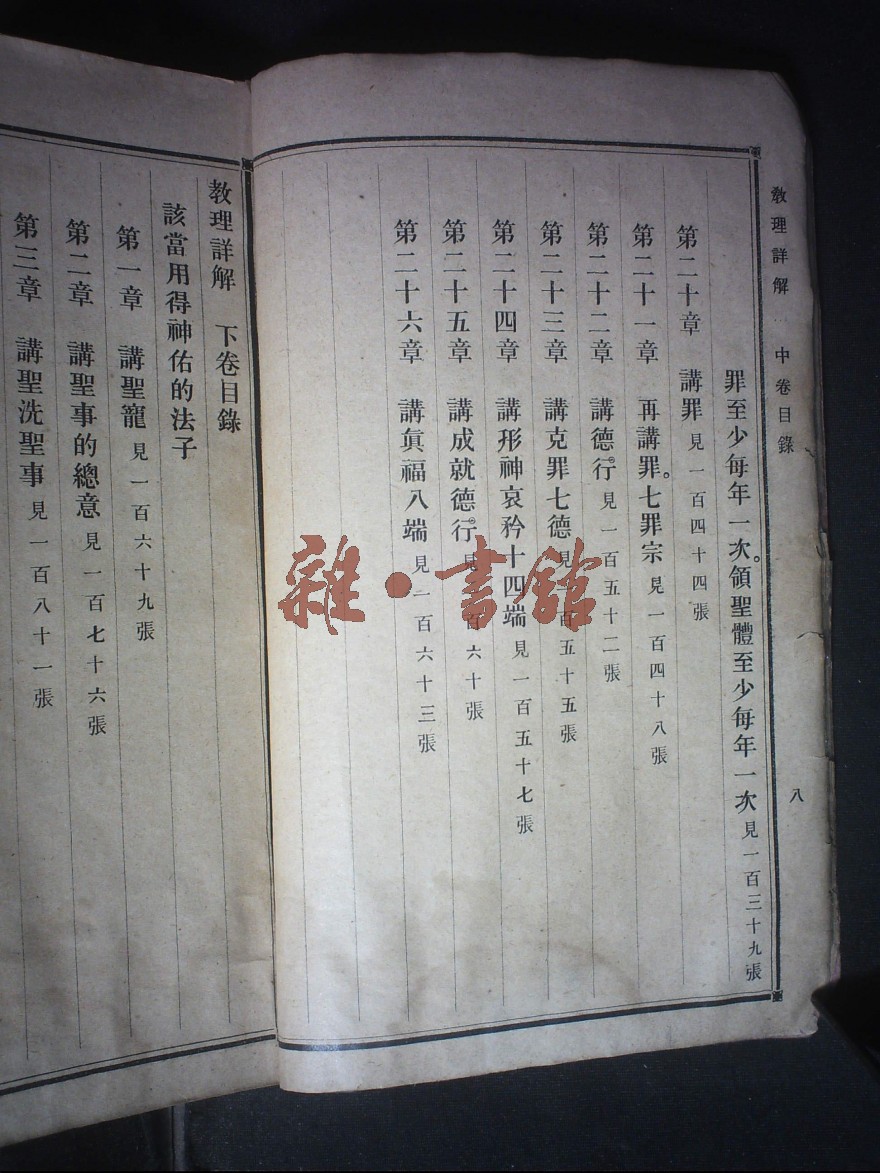 教理詳解 中卷目錄 八
罪至少每年一次。領聖體至少每年一次 見一百三十九張
第二十章 講罪 見一百四十四張
第二十一章 再講罪。七罪宗 見一百四十八張
第二十二章 講德行 見一百五十二張
第二十三章 講克罪七德 見一百五十五張
第二十四章 講形神哀矜十四端 見一百五十七張
第二十五章 講成就德行 見一百六十張
第二十六章 講眞福八端 見一百六十三張
教理詳解 下卷目錄
該當用得神佑的法子
第一章 講聖寵 見一百六十九張
第二章 講聖事的總意 見一百七十六張
第三章 講聖洗聖事 見一百八十一張
雜·書館